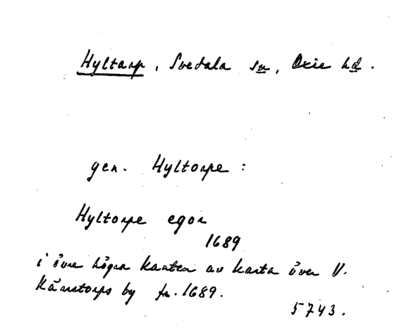 Hyltarp, Svedala sn, Oxie hd.
gen. Hyltorpe:
Hyltorpe egor
1689
i övre högra kanten av karta över V.
Kärrstorps by fr. 1689.
5743.